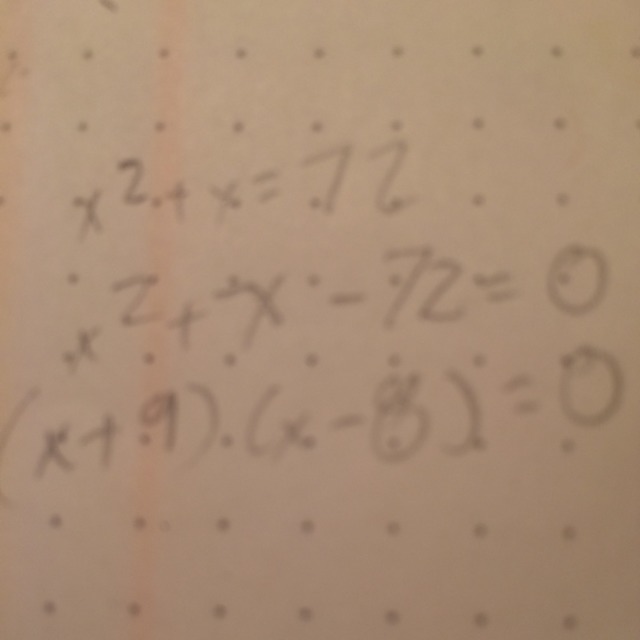 x² + x = 72
x² + x - 72 = 0
(x + 9) . (x - 8) = 0